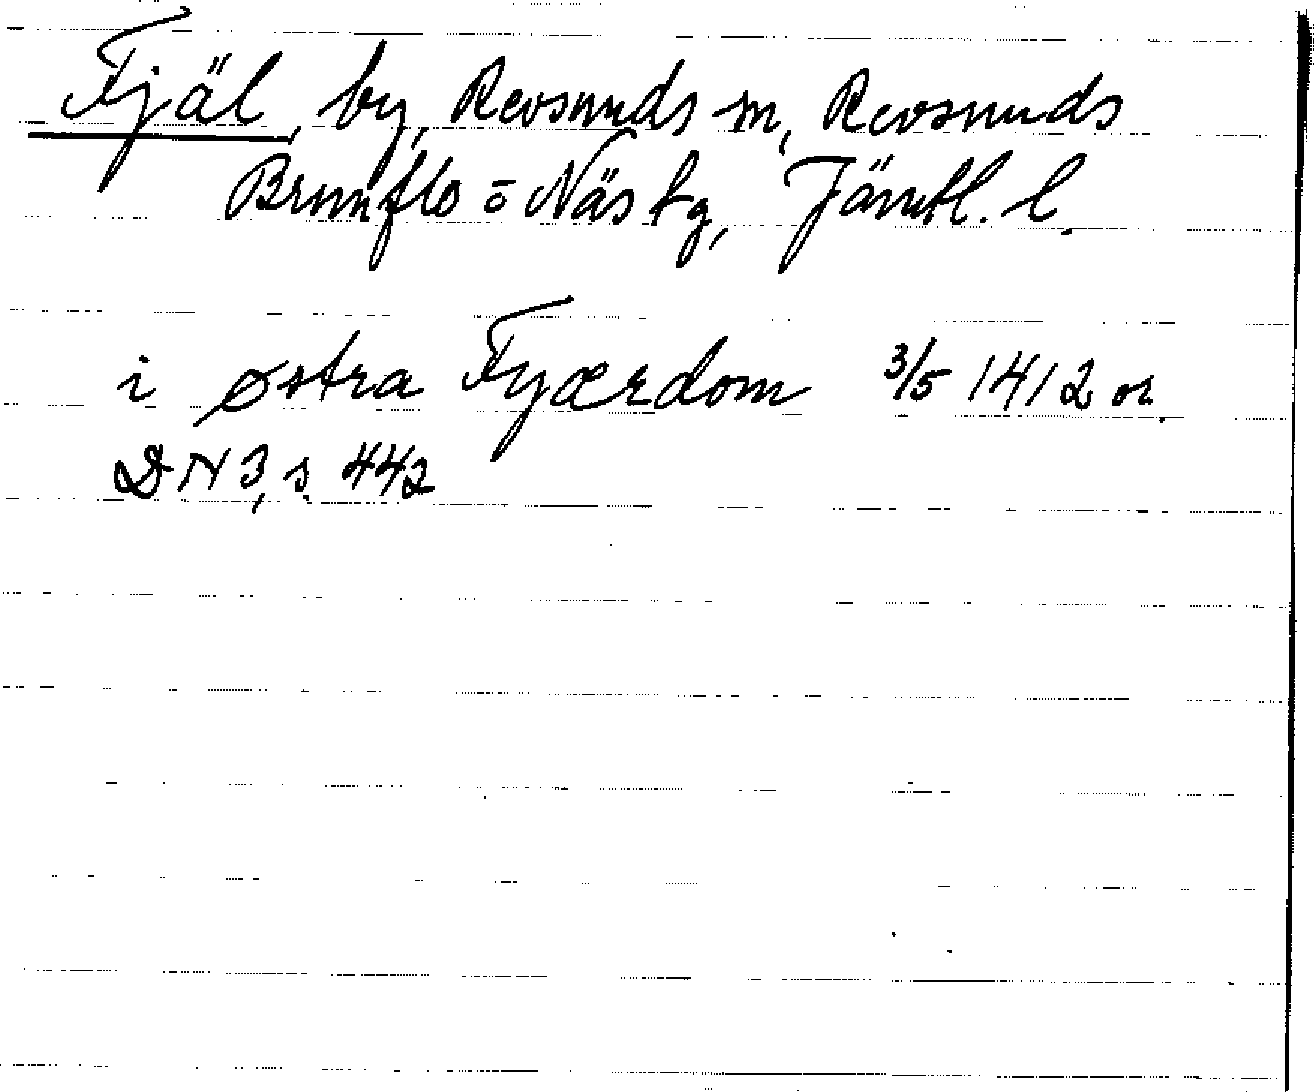 Fjäl, by, Revsunds sn, Revsunds
Brunflo o Näs tg, Jämtl. l.
i østra Fyærdom 3/5 1412 or.
DN 3, s. 442